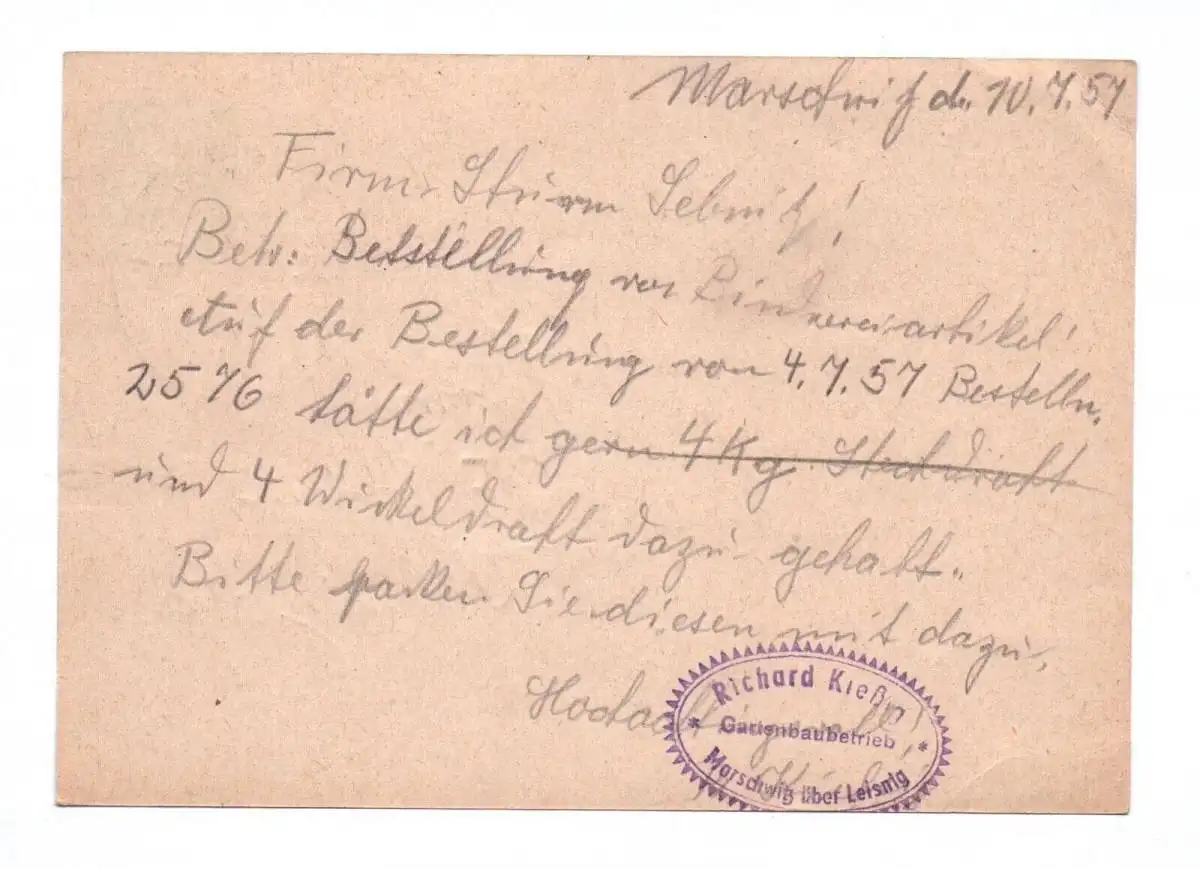 Marschwitz d. 10.7.57
Firm. Sturm Sebnitz!
Betr: Betstellung von Bindereiartikel!
Auf der Bestellung vom 4.7.57 Bestelln.
2576 hätte ich gern 4 Kg. Steckdraht
und 4 Wickeldraht dazu gehabt.
Bitte packen Sie diesen mit dazu.
Hochachtungsvoll!
Richard
Gartenbaubetrieb
Marschwitz über Leisnig